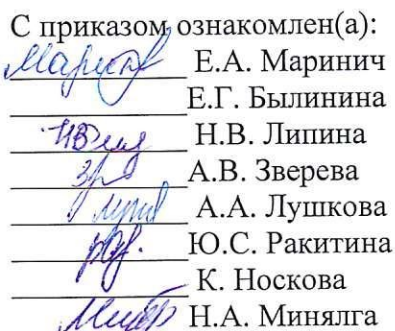 С приказом ознакомлен(а):
Е.А. Маринич
Е.Г. Былинина
Н.В. Липина
А.В. Зверева
А.А. Лушкова
Ю.С. Ракитина
К. Носкова
Н.А. Минялга